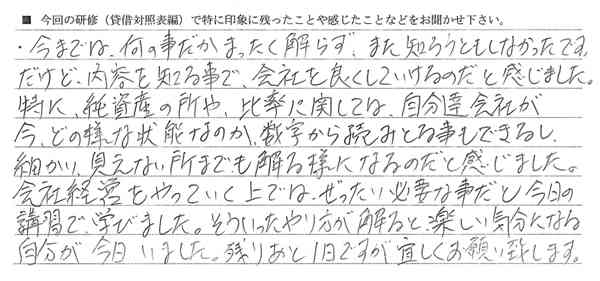 ■ 今回の研修（貸借対照表編）で特に印象に残ったことや感じたことなどをお聞かせ下さい。
・今までは、何の事だかまったく解らず、また知ろうともしなかったです。
だけど、内容を知る事で、会社を良くしていけるのだと感じました。
特に、純資産の所や、比率に関しては、自分達会社が
今、どの様な状態なのか、数字から読みとる事もできるし、
細かい、見えない所までも解る様になるのだと感じました。
会社経営をやっていく上では、ぜったい必要な事だと今日の
講習で、学びました。そういったやり方が解ると、楽しい気分になる
自分が今日いました。残りあと1日ですが宜しくお願い致します。